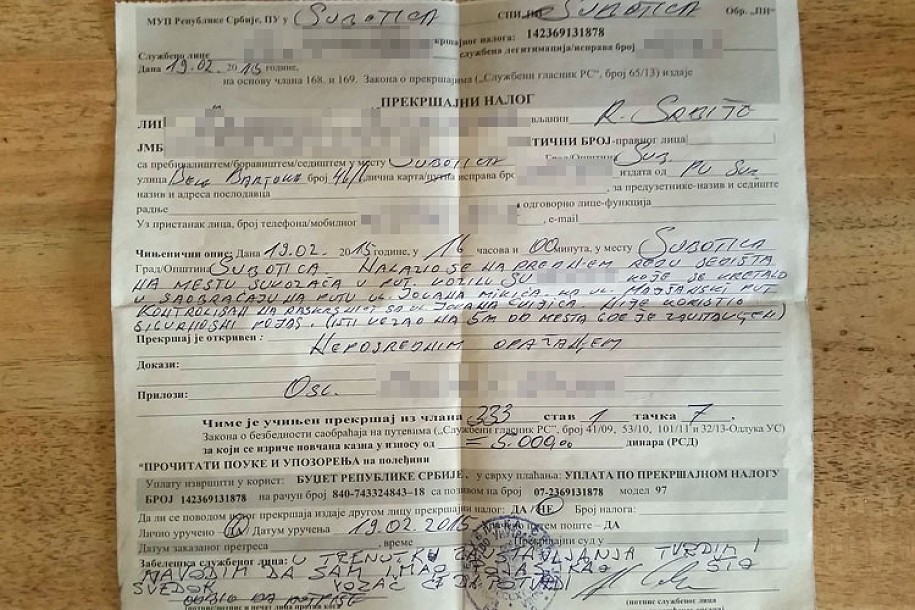 МУП Републике Србије, ПУ у SUBOTICA СПИ SUBOTICA Обр. „ПН“
кршајног налога: 142369131878
Службено лице службена легитимација/исправа број
Дана 19.02. 2015 године,
на основу члана 168. и 169. Закона о прекршајима („Службени гласник РС“, број 65/13) издаје
ПРЕКРШАЈНИ НАЛОГ
ЛИЦ вљанин R. SRBIJE
ЈМБ ТИЧНИ БРОЈ-правног лица
са пребивалиштем/боравиштем/седиштем у месту SUBOTICA Град/Општина SUB.
улица BELE BARTOKA број 46/ лична карта/путна исправа бр издата од PU SU
назив и адреса послодавца , за предузетнике-назив и седиште
радње одговорно лице-функција
Уз пристанак лица, број телефона/мобилног , e-mail
Чињенични опис: Дана 19.02. 2015 године, у 16 часова и 00 минута, у месту SUBOTICA
Град/Општина SUBOTICA NALAZIO SE NA PREDNJEM REDU SEDIŠTA
NA MESTU SUVOZAČA U PUT. VOZILU SU KOJE SE KRETALO
U SAOBRAĆAJU NA PUTU UL. JOVANA MIKIĆA KA UL. MAJŠANSKI PUT
KONTROLISAN NA RASKRSNICI SA UL. JOVANA NIJE KORISTIO
SIGURNOSNI POJAS. (ISTI VEZAO NA 5m OD MESTA GDE JE ZAUSTAVLJEN)
Прекршај је откривен : NEPOSREDNIM OPAŽANJEM
Докази:
Прилози: OSL.
Чиме је учињен прекршај из члана 333 став 1 тачка 7 ,
Закона о безбедности саобраћаја на путевима („Службени гласник РС“, број 41/09, 53/10, 101/11 и 32/13-Одлука УС)
за који се изриче новчана казна у износу од = 5.000,00 динара (РСД)
*ПРОЧИТАТИ ПОУКЕ И УПОЗОРЕЊА на полеђини
Уплату извршити у корист: БУЏЕТ РЕПУБЛИКЕ СРБИЈЕ. у сврху плаћања: УПЛАТА ПО ПРЕКРШАЈНОМ НАЛОГУ
БРОЈ 142369131878 на рачун број 840-743324843-18 са позивом на број 07-2369131878 модел 97
Да ли се поводом налог прекршаја издаје другом лицу прекршајни налог: ДА /НЕ Број налога:
Лично уручено Датум уручења 19.02.2015 поште – ДА
Датум заказаног претреса , време Прекршајни суд у
Забелешка службеног лица: U TRENUTKU ZAUSTAVLJANJA TVRDIM I
NAVODIM DA SAM IMAO POJAS KAO ŠTO
SVEDOK VOZAČ ĆE DA POTVRDI
ODBIO DA POTPIŠE
(потпис службеног лица